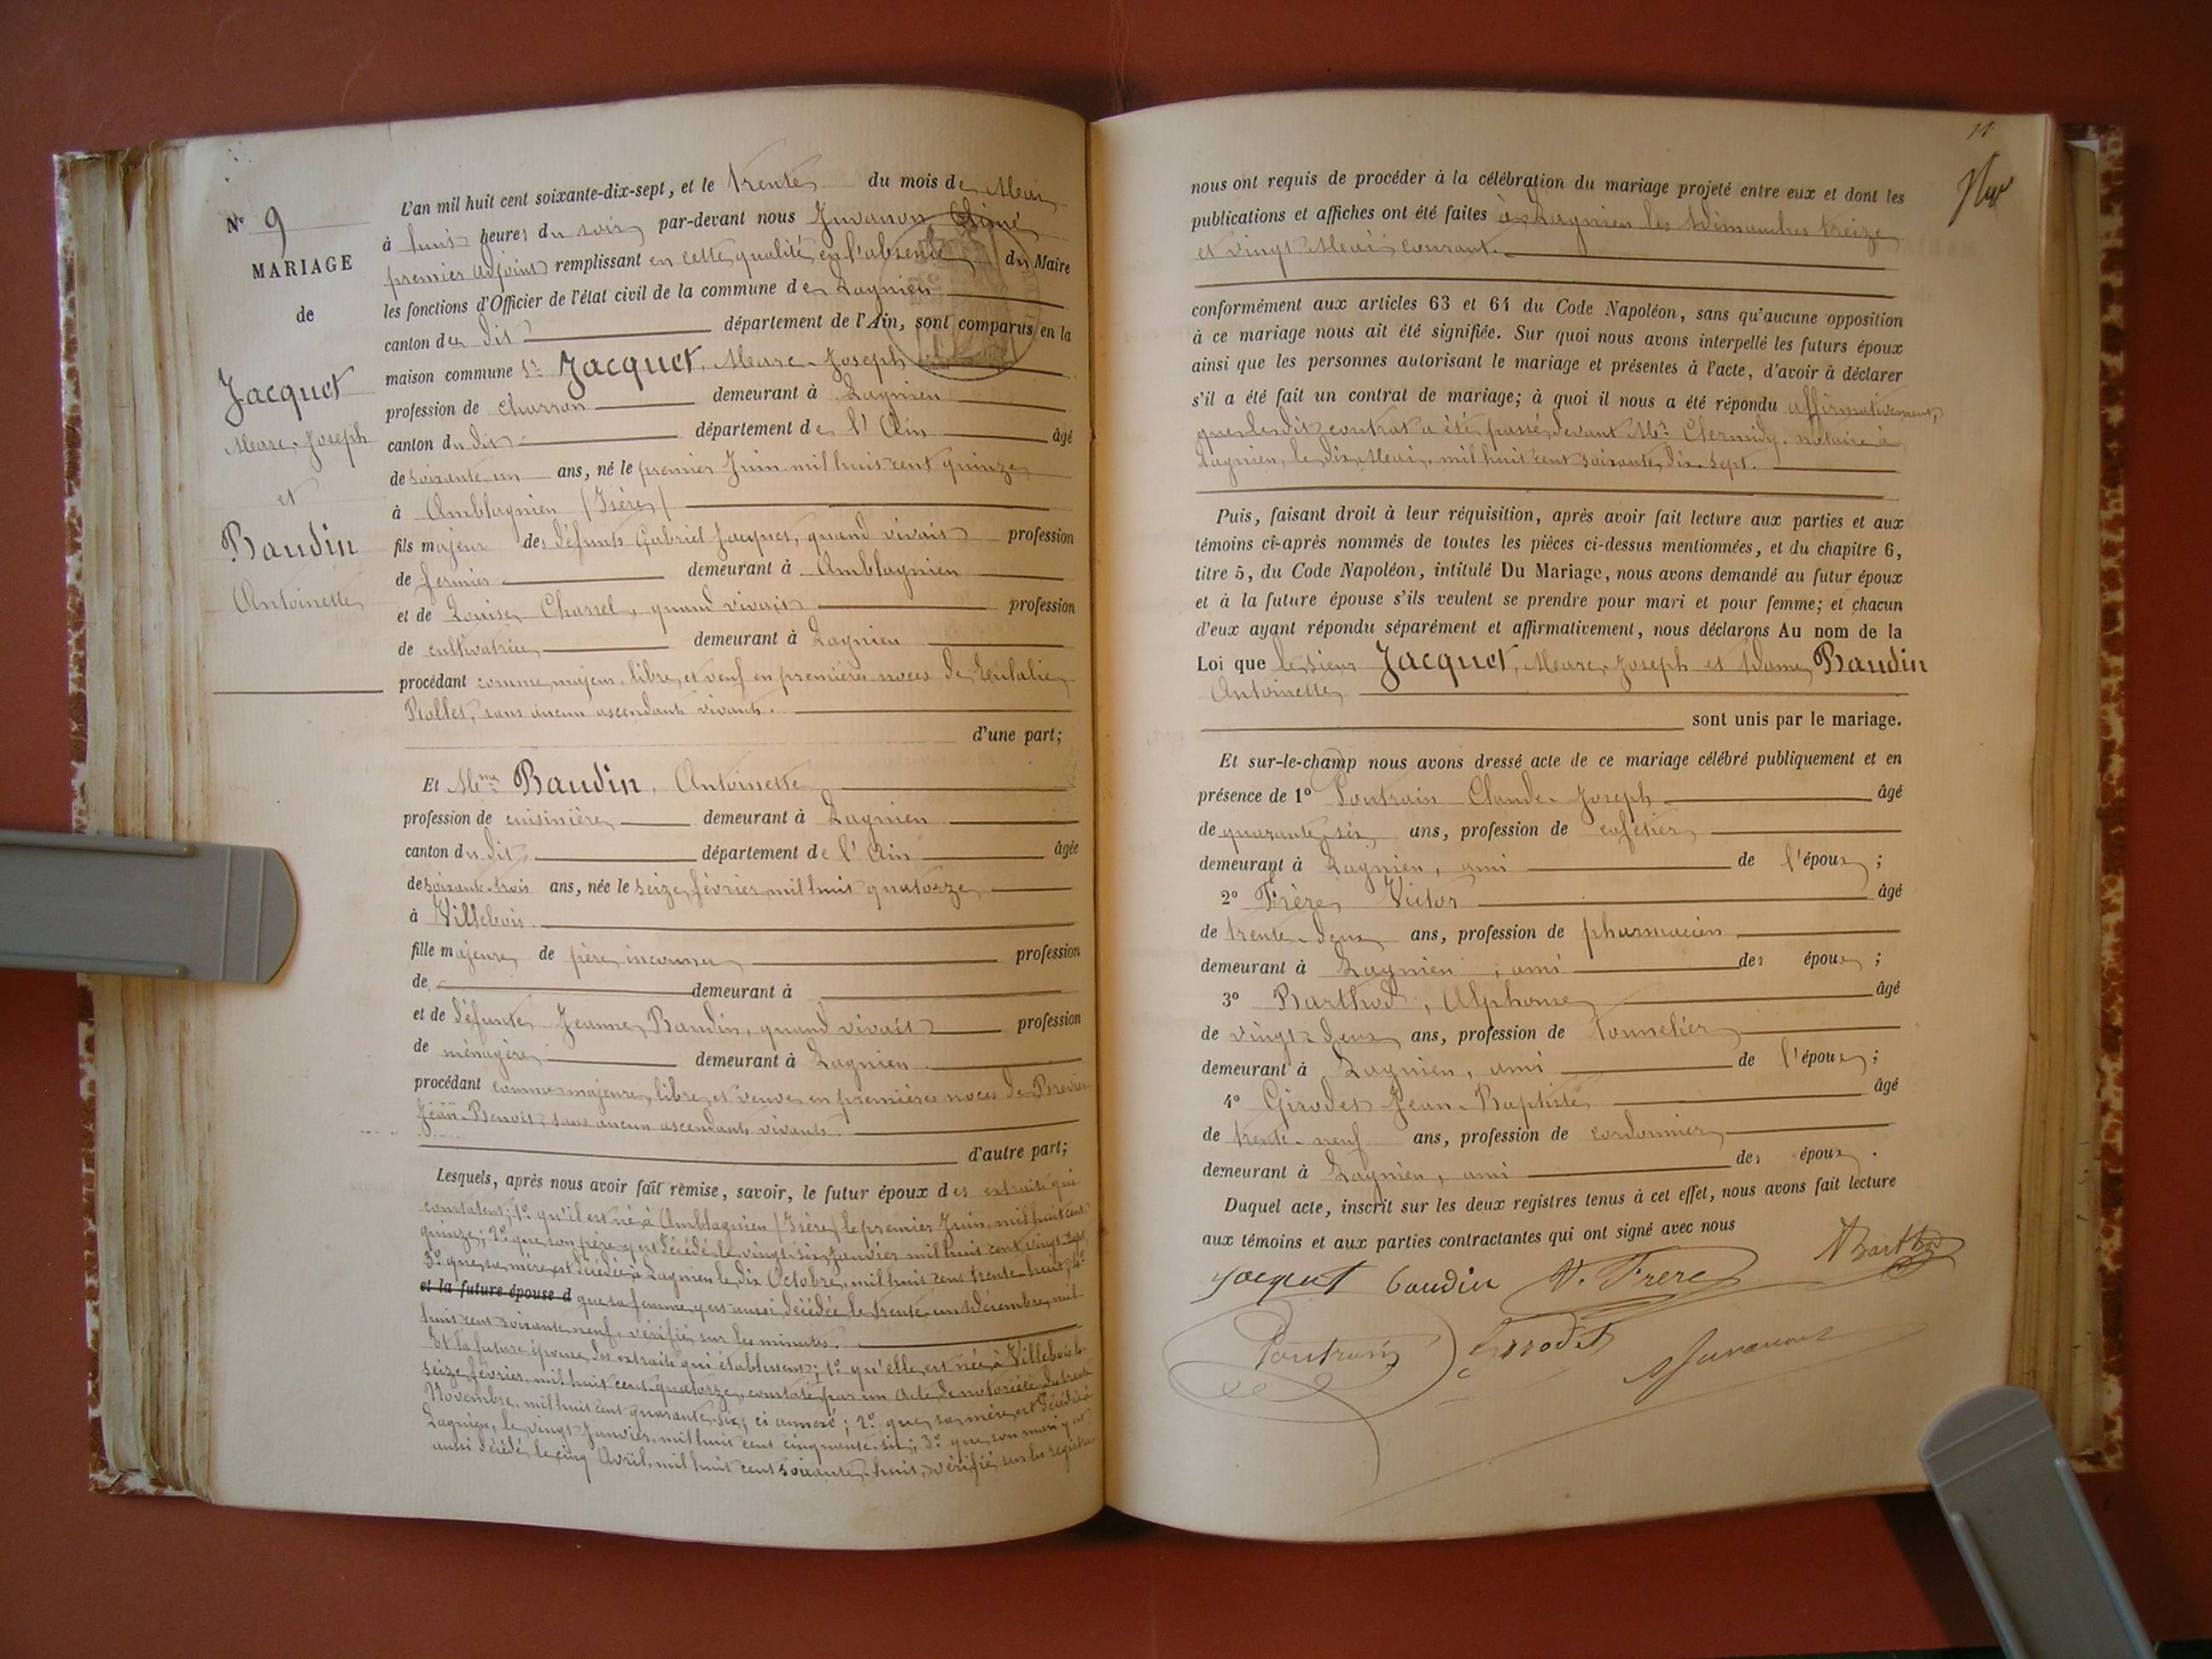 N° 9
MARIAGE
de
Jacquet
Marc-Joseph
et
Baudin
Antoinette
L'an mil huit cent soixante-dix-sept, et le trente du mois de Mai
à huit heures du soir par-devant nous Juvanon Aimé
premier adjoint remplissant en cette qualité en l'absence du Maire
les fonctions d'Officier de l'état civil de la commune de Lagnieu
canton du dit département de l'Ain, sont comparus en la
maison commune Sr Jacquet, Marc-Joseph
profession de charron demeurant à Lagnieu
canton du dit département de l'Ain âgé
de soixante-un ans, né le premier Juin mil huit cent quinze
à Amblagnieu (Isère)
fils majeur des défunts Gabriel Jacquet, quand vivait profession
de fermier demeurant à Amblagnieu
et de Louise Charrel, quand vivait profession
de cultivatrice demeurant à Lagnieu
procédant comme majeur, libre, et veuf en premières noces de Eulalie
Rollet, sans aucun ascendants vivants.
d'une part;
Et Mme Baudin, Antoinette
profession de cuisinière demeurant à Lagnieu
canton du dit département de l'Ain âgée
de soixante-trois ans, née le seize février mil huit quatorze
à Villebois
fille majeure de père inconnu profession
de demeurant à
et de défunte Jeanne Baudin, quand vivait profession
de ménagère demeurant à Lagnieu
procédant comme majeure, libre, et veuve en premières noces de
Jean-Benoit, sans aucun ascendants vivants.
d'autre part;
Lesquels, après nous avoir fait remise, savoir, le futur époux des extraits qui
constatent; 1° qu'il est né à Amblagnieu (Isère) le premier Juin mil huit cent
quinze; 2° que son père y est décédé le vingt-six Janvier mil huit cent vingt-sept
3° que sa mère est décédée à Lagnieu le dix Octobre, mil huit cent trente-huit; 4°
et la future épouse d que sa femme y est aussi décédée le trente-un décembre, mil
huit cent soixante-neuf, vérifié sur les minutes.
Et la future épouse des extraits qui établissent; 1° qu'elle est née à Villebois le
seize février, mil huit cent quatorze, constaté par un acte de notoriété du trente
Novembre, mil huit cent quarante-six, ci annexé; 2° que sa mère est décédée à
Lagnieu, le vingt Janvier, mil huit cent cinquante-six; 3° que son mari y est
aussi décédé le cinq Avril, mil huit cent soixante-huit, vérifié sur les registres
11
nous ont requis de procéder à la célébration du mariage projeté entre eux et dont les
publications et affiches ont été faites à Lagnieu les Dimanches treize
et vingt Mai courant.
conformément aux articles 63 et 64 du Code Napoléon, sans qu'aucune opposition
à ce mariage nous ait été signifiée. Sur quoi nous avons interpellé les futurs époux
ainsi que les personnes autorisant le mariage et présentes à l'acte, d'avoir à déclarer
s'il a été fait un contrat de mariage; à quoi il nous a été répondu affirmativement,
que le dit contrat a été passé devant Me Clermidy, notaire à
Lagnieu, le dix Mai, mil huit cent soixante-dix-sept.
Puis, faisant droit à leur réquisition, après avoir fait lecture aux parties et aux
témoins ci-après nommés de toutes les pièces ci-dessus mentionnées, et du chapitre 6,
titre 5, du Code Napoléon, intitulé Du Mariage, nous avons demandé au futur époux
et à la future épouse s'ils veulent se prendre pour mari et pour femme; et chacun
d'eux ayant répondu séparément et affirmativement, nous déclarons Au nom de la
Loi que le sieur Jacquet, Marc-Joseph et Dame Baudin
Antoinette
sont unis par le mariage.
Et sur-le-champ nous avons dressé acte de ce mariage célébré publiquement et en
présence de 1° Poutrain Claude-Joseph âgé
de quarante-six ans, profession de cafetier
demeurant à Lagnieu, ami de l'époux;
2° Frère Victor âgé
de trente-deux ans, profession de pharmacien
demeurant à Lagnieu, ami des époux;
3° Barthod, Alphonse âgé
de vingt-deux ans, profession de tonnelier
demeurant à Lagnieu, ami de l'époux;
4° Girodet Jean-Baptiste âgé
de trente-neuf ans, profession de cordonnier
demeurant à Lagnieu, ami des époux.
Duquel acte, inscrit sur les deux registres tenus à cet effet, nous avons fait lecture
aux témoins et aux parties contractantes qui ont signé avec nous
Jacquet baudin V. Frere ABarthod
Poutrain Girodet AJuvanon